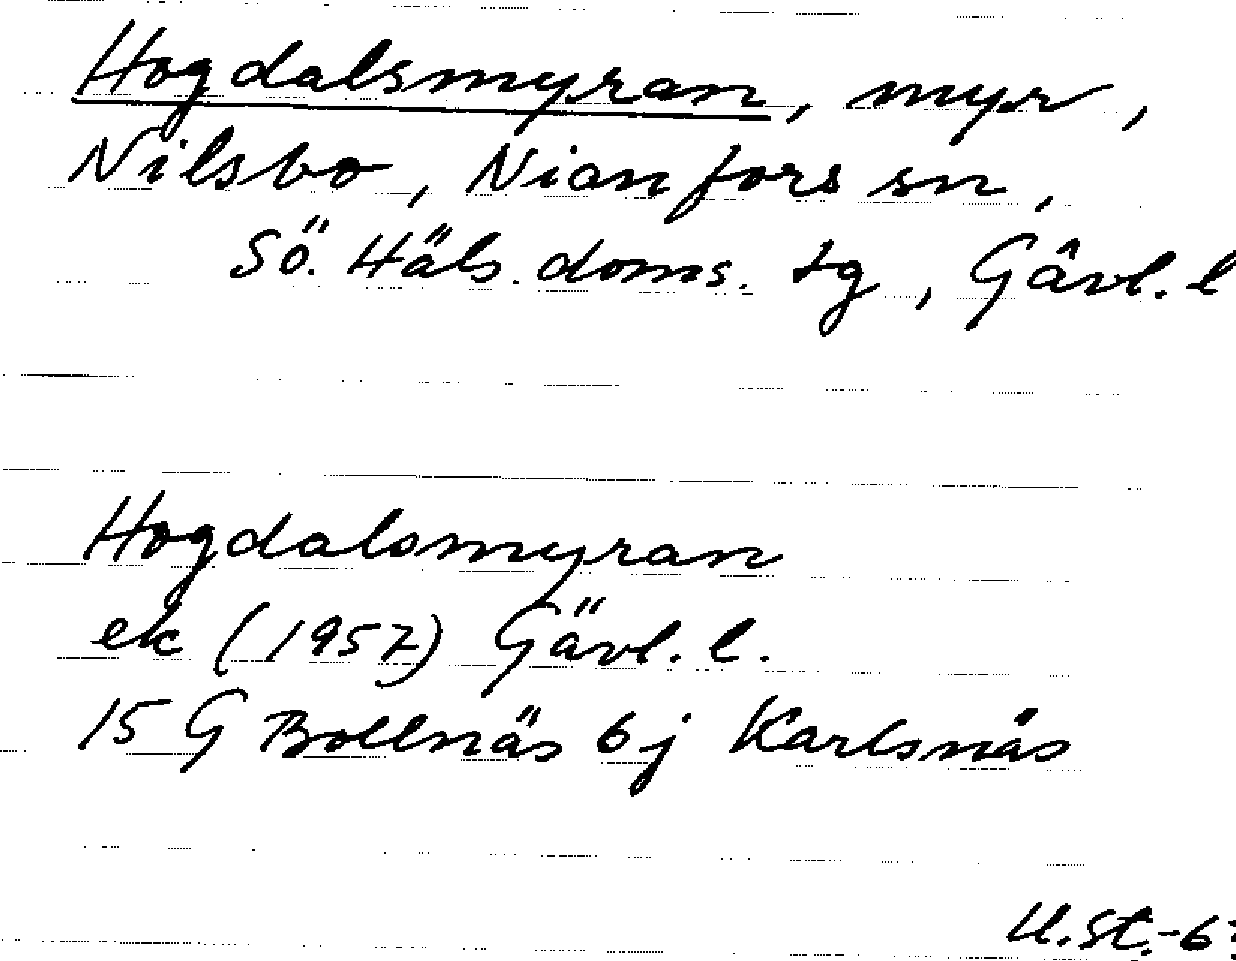 Hogdalsmyran, myr,
Nilsbo, Nianfors sn,
Sö. Häls. doms. tg, Gävl. l
Hogdalsmyran
ek (1957) Gävl. l.
15 G Bollnäs 6j Karlsnäs
U. St. -6